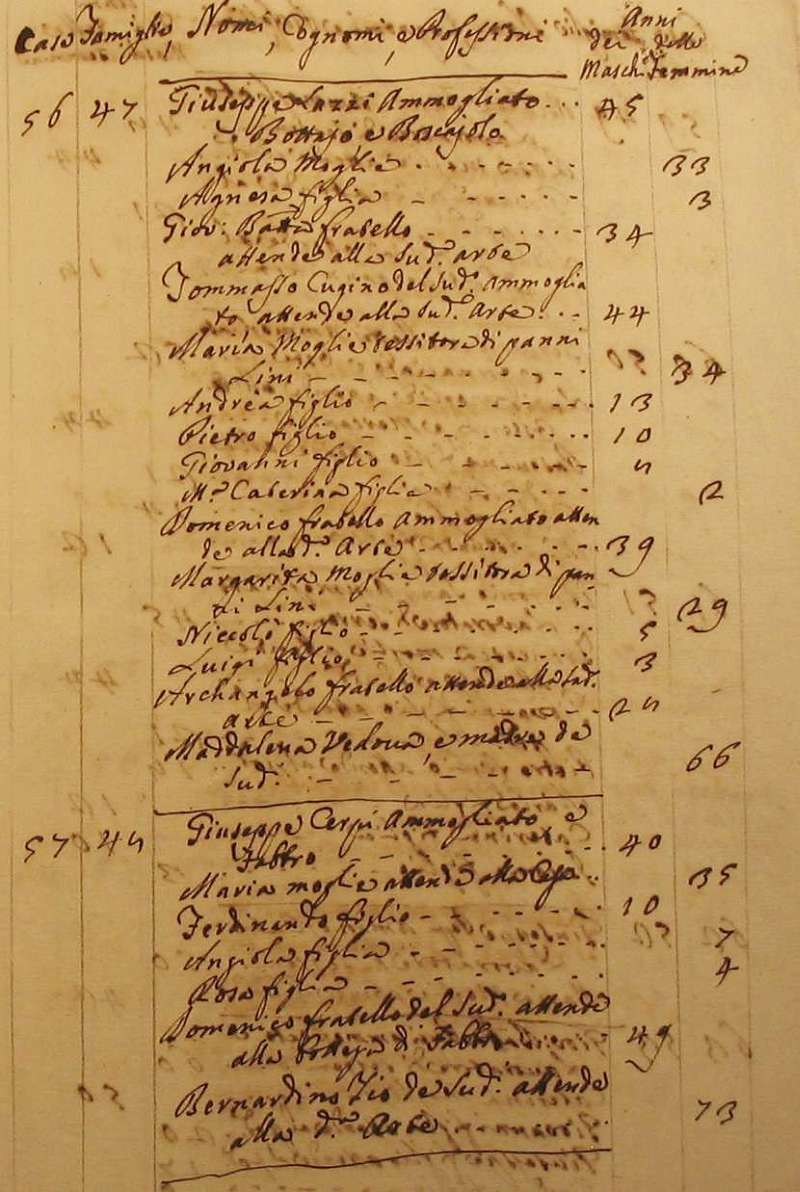 Case Famiglie, Nomi, Cognomi, e Professioni Anni
dei delle
Maschi Femmine
56 47 Giuseppe Lazzi Ammogliato... 45
Bottajo e Boscajolo
Angiola Moglie 33
Agnesa figlia 3
Giov: Batta fratello 34
attende alla Sud.a arte
Tommasso Cugino del Sud.o Ammoglia
to attende alla Sud.a Arte 44
Maria Moglie tessitora di panni
Lini 34
Andrea figlio 13
Pietro figlio 10
Giovanni figlio
M.a Caterina figlia 2
Domenico fratello Ammogliato atten
de alla d.a Arte 39
Margarita Moglie tessitora di pan
ni Lini 29
Niccolò figlio 5
Luigi figlio 3
Archangelo fratello attende alla Sud.a
arte
Maddalena Vedova, e madre de
Sud.i 66
57 Giuseppe Cerpi Ammogliato e
Fabbro 40
Maria moglie attende alla Casa 35
Ferdinando figlio 10
Angiola figlia 7
Rosa figlia 4
Domenico fratello del Sud.o attende
alla Bottega di Fabbro 49
Bernardino Zio de Sud.i attende
alla d.a Arte 73